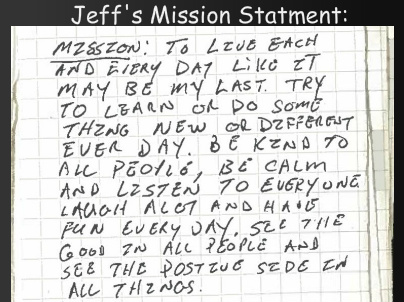 Jeff's Mission Statment:
MISSION: TO LIVE EACH
AND EVERY DAY LIKE IT
MAY BE MY LAST. TRY
TO LEARN OR DO SOME
THING NEW OR DIFFERENT
EVER DAY. BE KIND TO
ALL PEOPLE, BE CALM
AND LISTEN TO EVERYONE
LAUGH ALOT AND HAVE
FUN EVERY DAY. SEE THE
GOOD IN ALL PEOPLE AND
SEE THE POSTIVE SIDE IN
ALL THINGS.